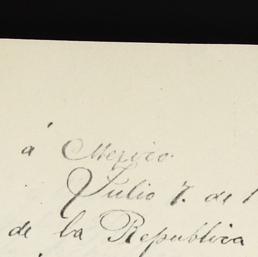 á Mexico.
Julio 7. de 1
de la Republica